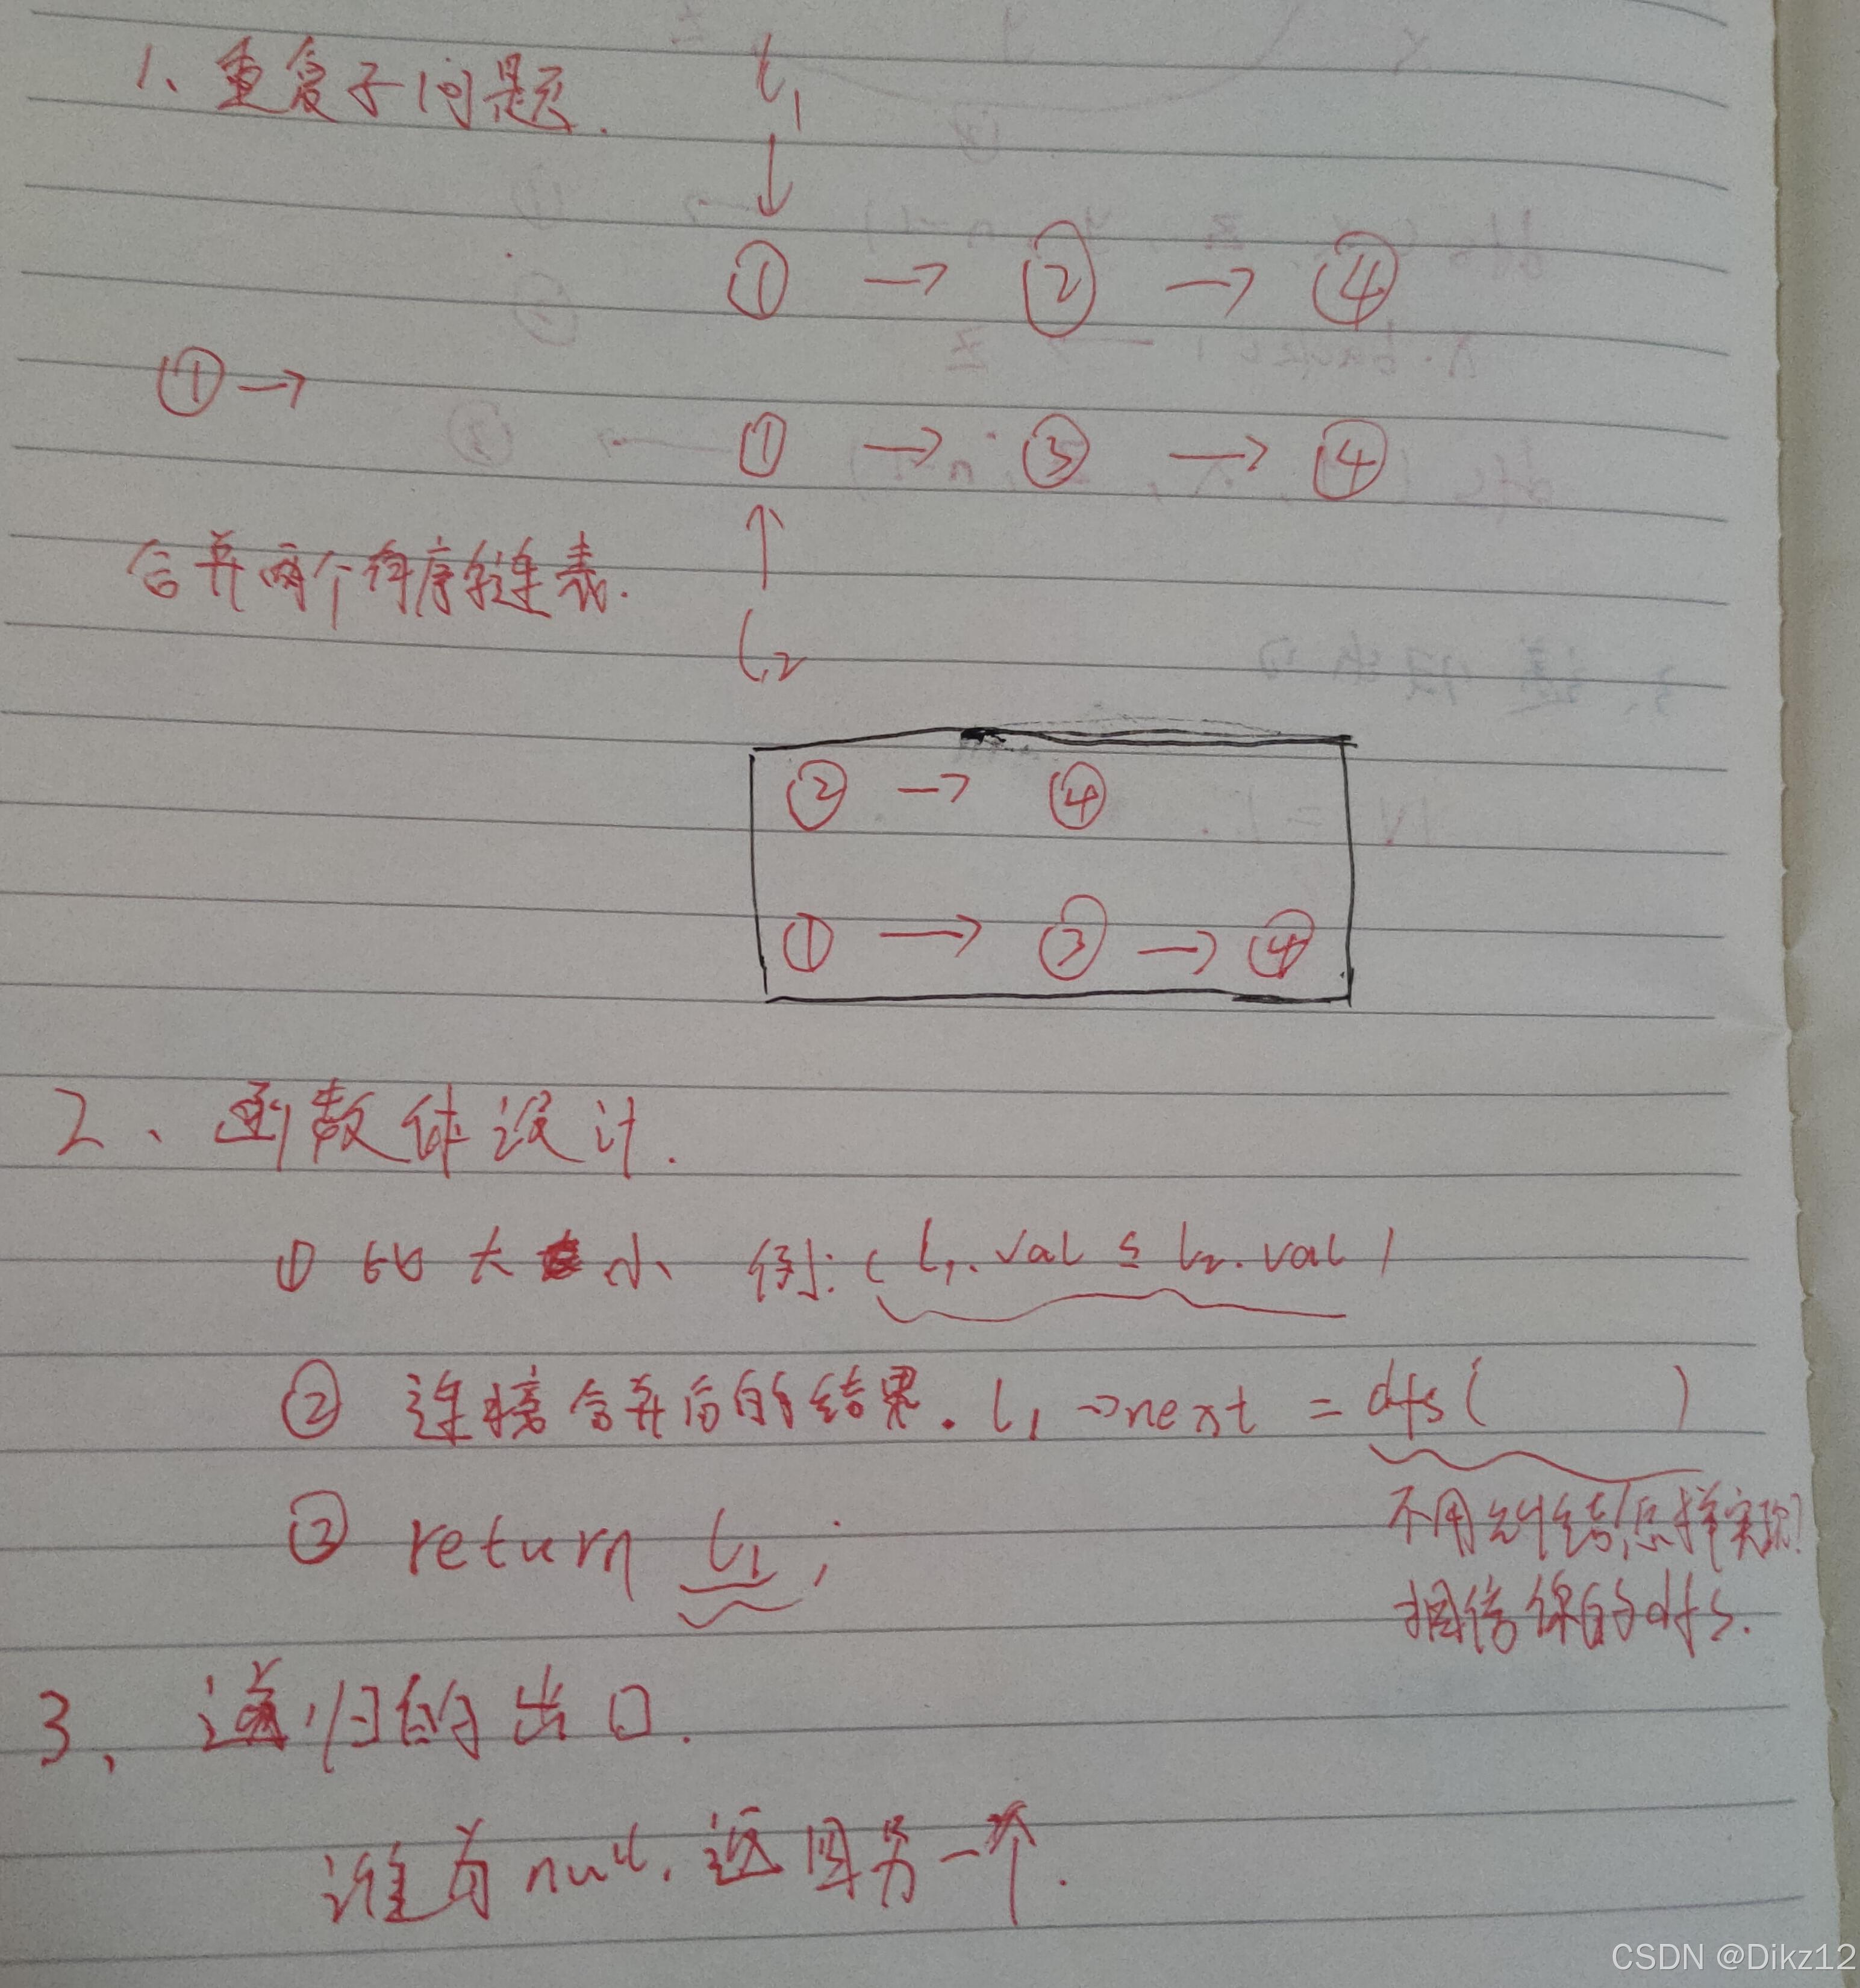 1、重复子问题.
l₁
↓
① → ② → ④
① →
① → ③ → ④
↑
合并两个有序链表.
l₂
② → ④
① → ③ → ④
2、函数体设计.
① 比大小 例:( l₁.val ≤ l₂.val )
② 连接合并后的结果. l₁→next = dfs( )
不用纠结怎样实现?
③ return l₁;
相信你的dfs.
3、递归的出口.
谁为null,返回另一个.
CSDN @Dikz12